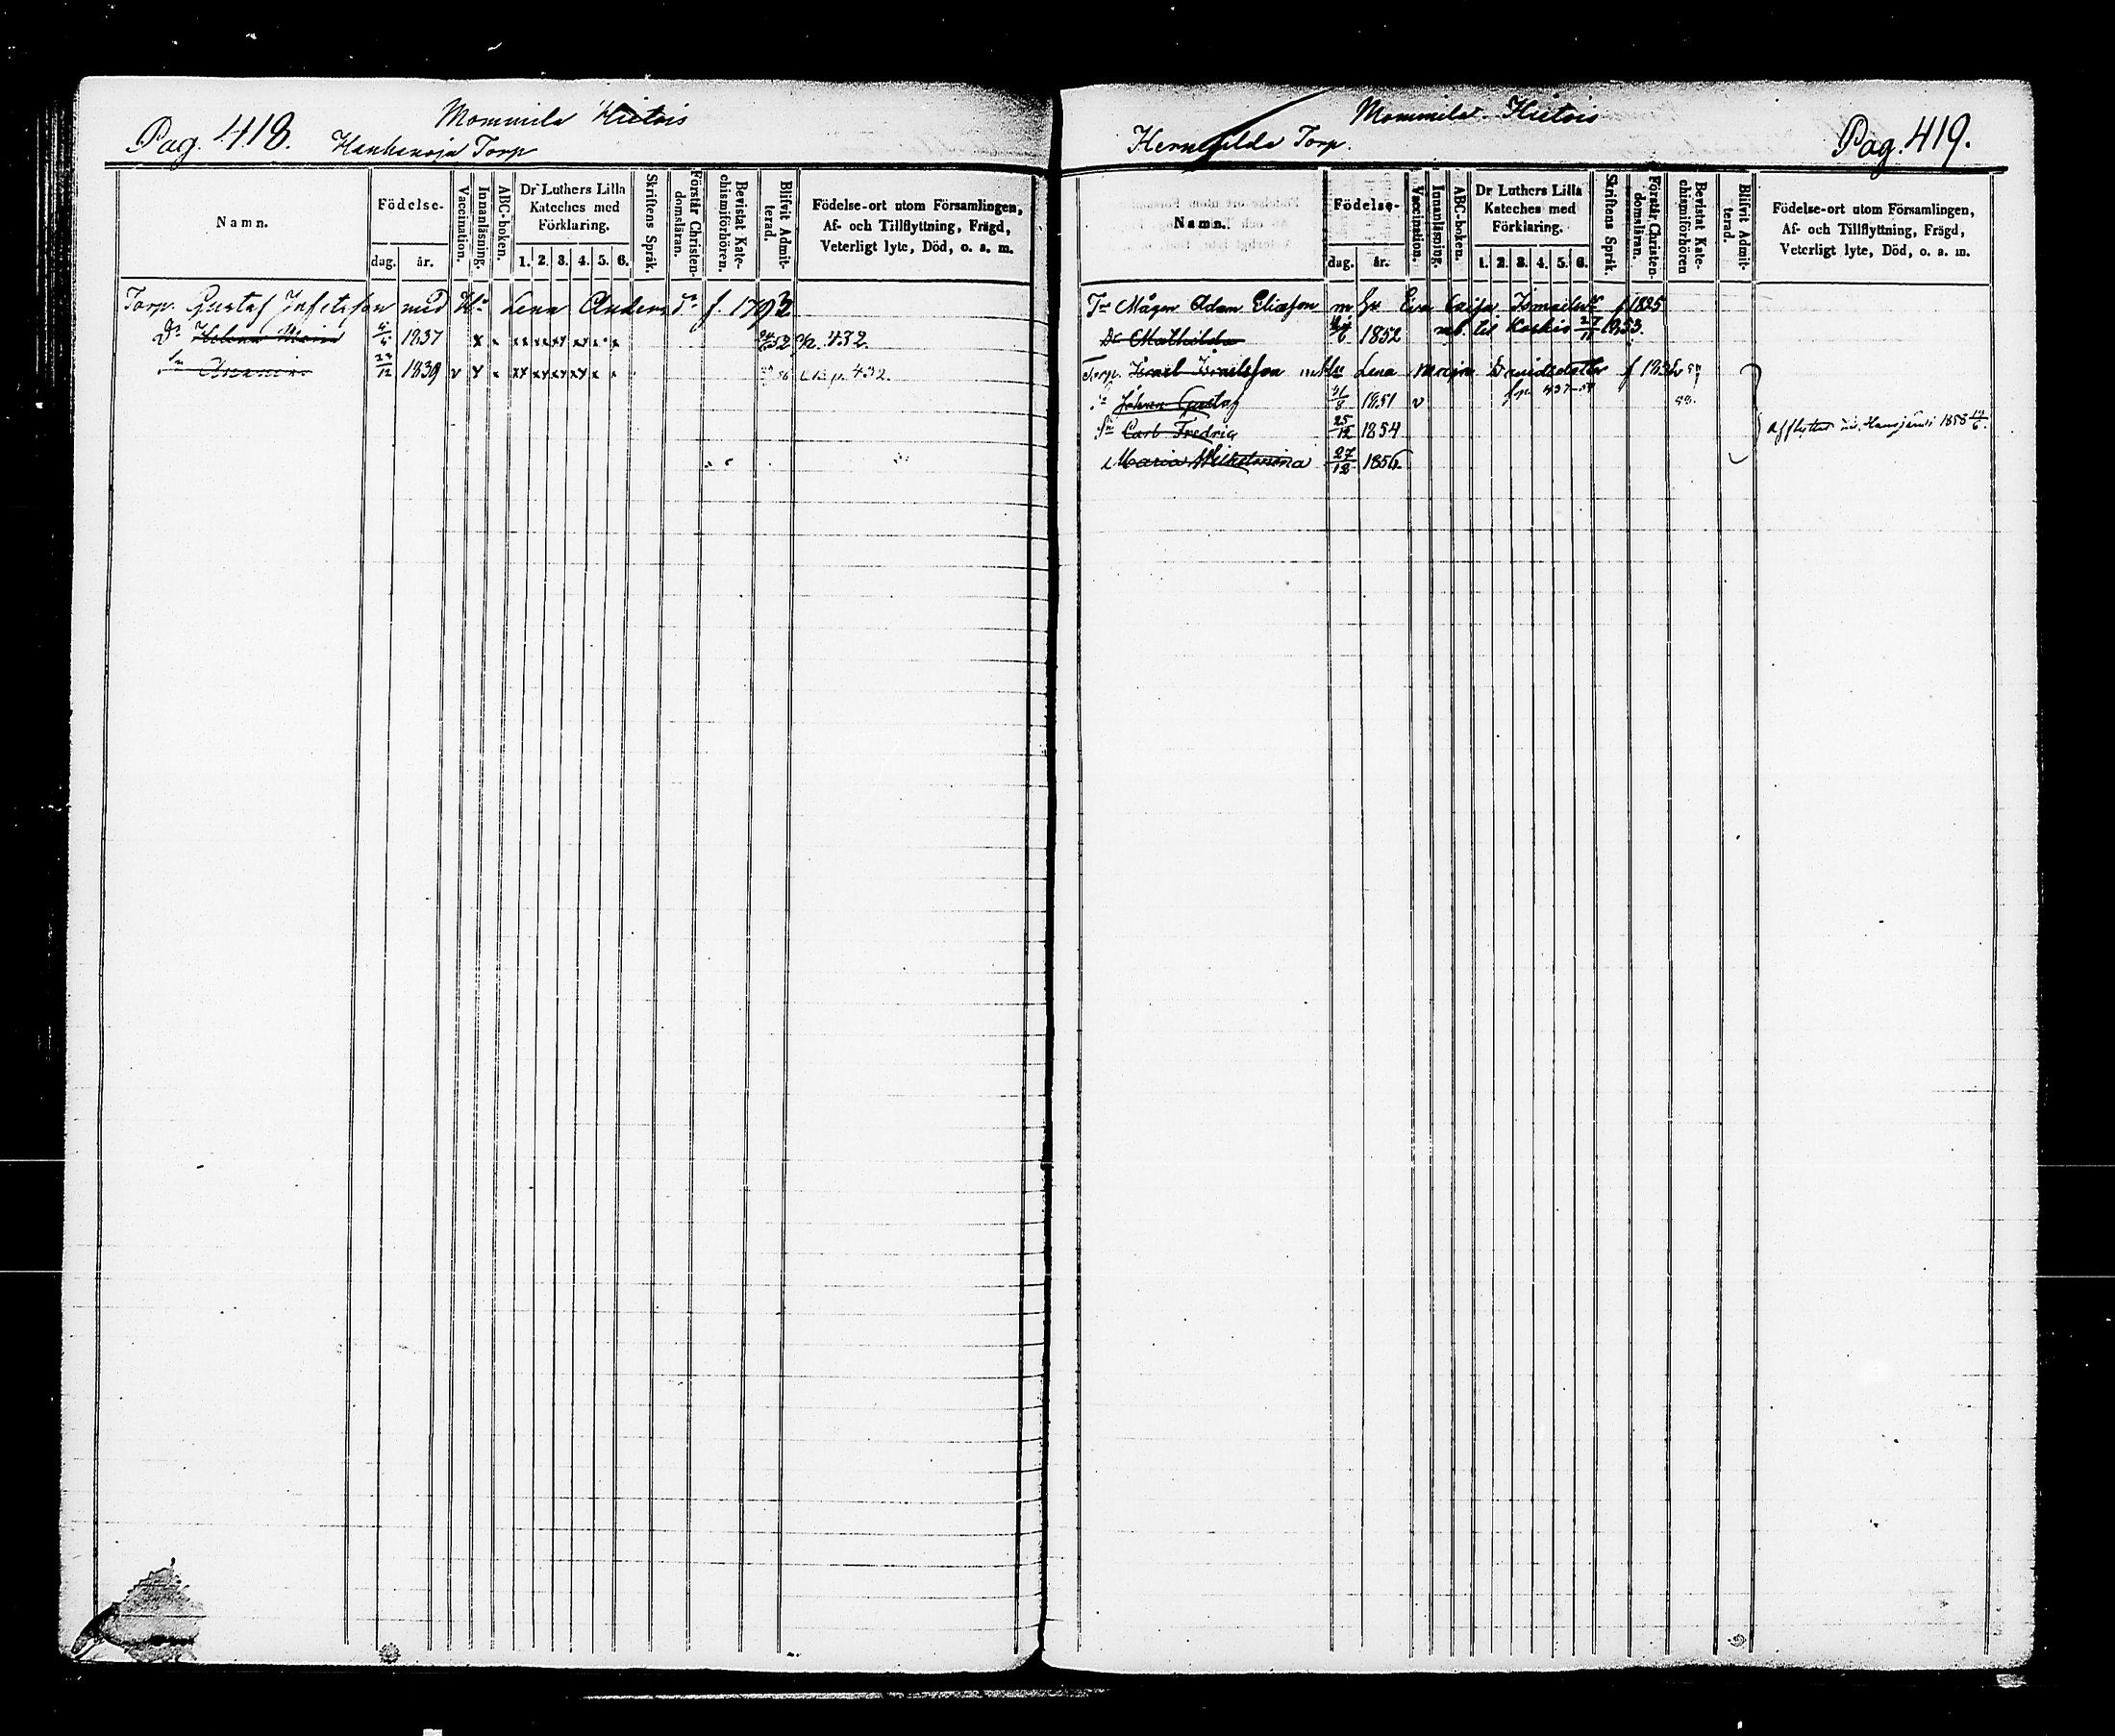 Pag. 418.
Mommila Hietois
Hankanoja Torp
Namn.
Födelse-
dag.
år.
Vaccination.
Innanläsning.
ABC-boken.
Dr Luthers Lilla
Kateches med
Förklaring.
1. 2. 3. 4. 5. 6.
Skriftens Språk.
Förstår Christen-
domsläran.
Bevistat Kate-
chismiförhören.
Blifvit Admit-
terad.
Födelse-ort utom Församlingen,
Af- och Tillflyttning, Frägd,
Veterligt lyte, Död, o. s. m.
Torp. Gustaf med Hu Lena Anders dr f. 1793
Dr Helena Maria 1837 x x xx xx xx xx x x 52 p. 432.
Sn Ananias 22/12 1839 v x x xx xx xx xx x x 56 p. 432.
Mommila Hietois
Hernesilda Torp.
Pag. 419.
Namn.
Födelse-
dag.
år.
Vaccination.
Innanläsning.
ABC-boken.
Dr Luthers Lilla
Kateches med
Förklaring.
1. 2. 3. 4. 5. 6.
Skriftens Språk.
Förstår Christen-
domsläran.
Bevistat Kate-
chismiförhören
Blifvit Admit-
terad.
Födelse-ort utom Församlingen,
Af- och Tillflyttning, Frägd,
Veterligt lyte, Död, o. s. m.
Mågen Adam Eliasson m Eva Caisa f 1825
Dr Mathilda 1852 till Koskis 27/11 1853.
Torp. Israel Israelsson m Hu Lena Maria Davidsdotter f
Johan Gustaf 1851 v 437 58.
Sn Carl Fredric 25/12 1854 Afflyttat 1858
Maria Wilhelmina 27/12 1856